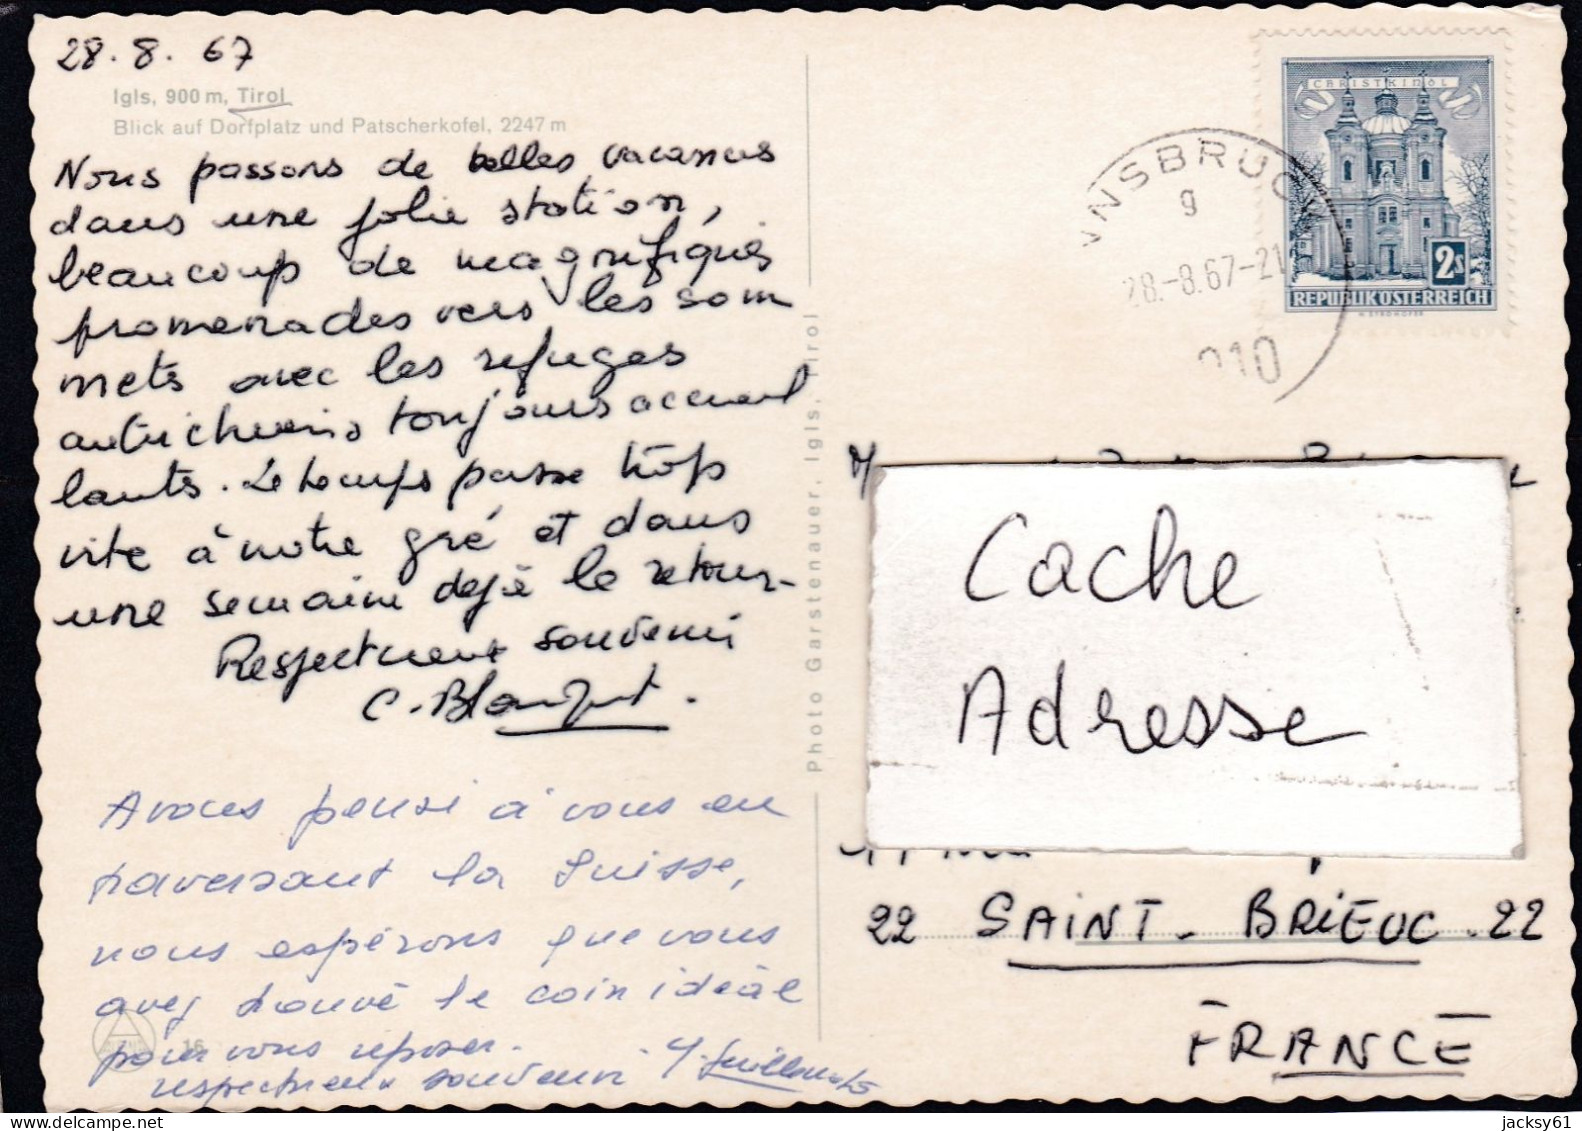 28.8.67
Igls, 900 m, Tirol
Blick auf Dorfplatz und Patscherkofel, 2247 m
Nous passons de belles vacances
dans une jolie station,
beaucoup de magnifiques
promenades vers les som
mets avec les refuges
autrichiens toujours accueil
lants. Le temps passe trop
vite à notre gré et dans
une semaine déjà le retour-
Respectueux souvenir
C.
Avons pensé à vous en
traversant la Suisse,
nous espérons que vous
avez trouvé le coin idéal
pour vous reposer.
respectueux souvenir - Y.
16
Photo Garstenauer, Igls, Tirol
INNSBRUCK
9
28.-8.67-21
010
CHRISTKINDL
2s
REPUBLIK ÖSTERREICH
Cache
Adresse
22 SAINT-BRIEUC.22
FRANCE
jacksy61